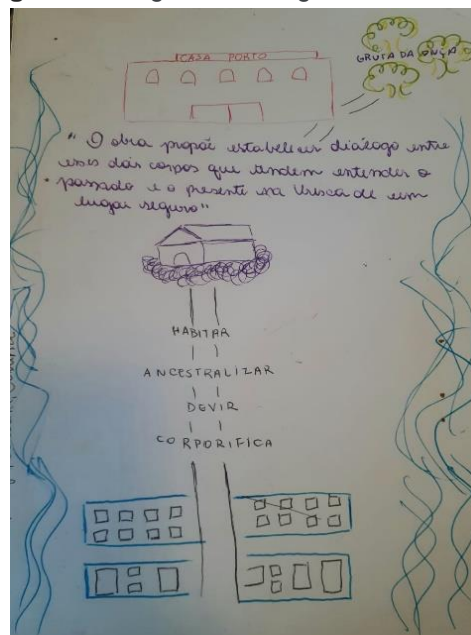 CASA PORTO
GRUTA DA ONÇA
" O obra propoẽ estabelecer diálogo entre
esses dois corpos que tendem entender o
passado e o presente na busca de um
lugar seguro"
HABITAR
ANCESTRALIZAR
DEVIR
CORPORIFICA